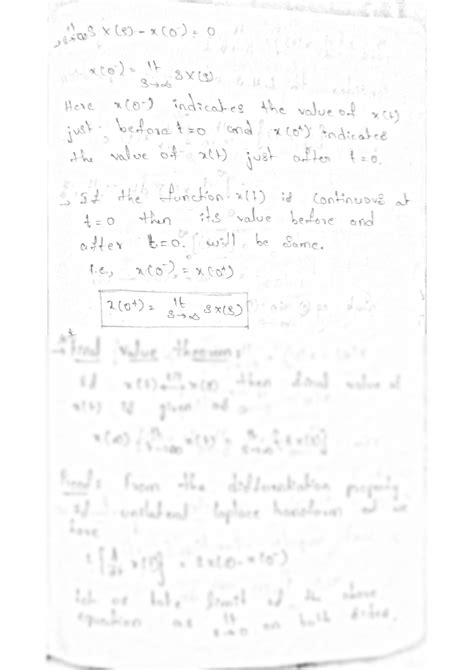 lt s→∞ S X(s) - x(0⁻) = 0
x(0⁻) = lt s→∞ S X(s)
Here x(0⁻) indicates the value of x(t)
just before t=0 and x(0⁺) indicates
the value of x(t) just after t=0.
→ If the function x(t) is continuous at
t=0 then its value before and
after t=0. will be same.
i.e., x(0⁻) = x(0⁺)
x(0⁺) = lt s→∞ S X(s)
Final value theorem:
then final value of
x(t) is given as
Proof: From the differentiation property
of unilateral laplace transform we
have
Let us take limit of the above
equation as lt s→0 on both sides.